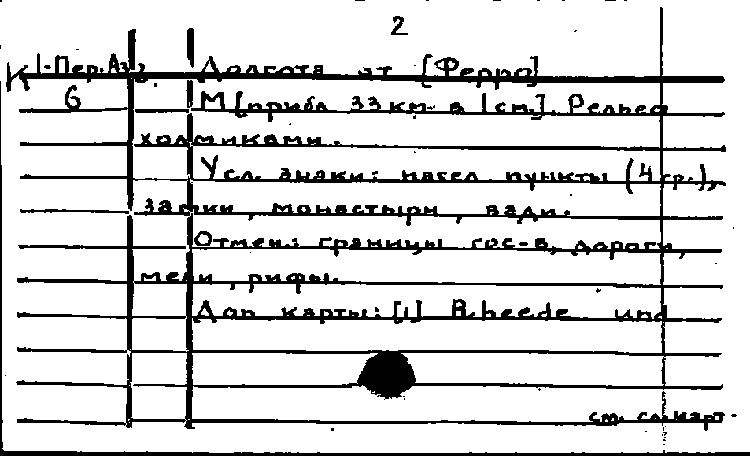 2
К 1-Пер.Аз
Долгота от [Ферро]
6
М [прибл 33 км. в 1 см.]. Рельеф
холмиками.
Усл. знаки: насел пункты (4 гр.),
замки, монастыри, вади.
Отмеч.: границы гос-в, дороги,
мели, рифы.
Доп карты: [1] Rheede und
см. сл. карт.